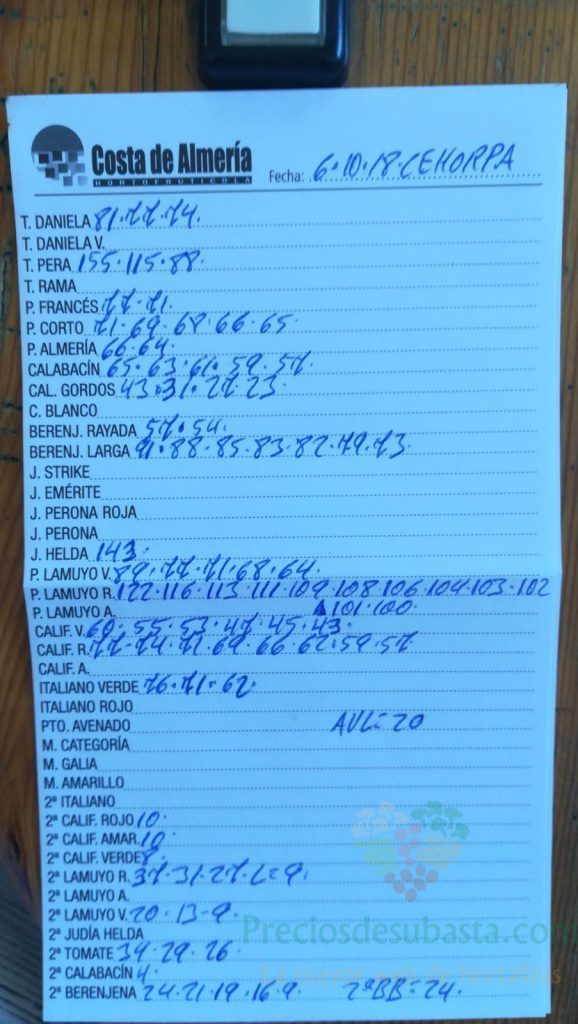 Costa de Almería
HORTOFRUTICOLA
Fecha: 6·10·18·CEHORPA
T. DANIELA 81·77·74·
T. DANIELA V.
T. PERA 155·115·88·
T. RAMA
P. FRANCÉS 77·71·
P. CORTO 71·69·68·66·65·
P. ALMERÍA 66·64·
CALABACÍN 65·63·61·59·57·
CAL. GORDOS 43·31·27·23·
C. BLANCO
BERENJ. RAYADA 57·54·
BERENJ. LARGA 91·88·85·83·82·79·73·
J. STRIKE
J. EMÉRITE
J. PERONA ROJA
J. PERONA
J. HELDA 143·
P. LAMUYO V. 89·77·71·68·64·
P. LAMUYO R. 122·116·113·111·109·108·106·104·103·102
P. LAMUYO A. 101·100·
CALIF. V. 60·55·53·47·45·43·
CALIF. R. 77·74·71·69·66·62·59·57
CALIF. A.
ITALIANO VERDE 76·71·62·
ITALIANO ROJO
PTO. AVENADO AVL=20
M. CATEGORÍA
M. GALIA
M. AMARILLO
2ª ITALIANO
2ª CALIF. ROJO 10·
2ª CALIF. AMAR. 10
2ª CALIF. VERDE 8·
2ª LAMUYO R. 37·31·27·L=9·
2ª LAMUYO A.
2ª LAMUYO V. 20·13·9·
Preciosdesubasta.com
2ª JUDÍA HELDA
2ª TOMATE 34·29·26·
2ª CALABACÍN 4·
2ª BERENJENA 24·21·19·16·9· 2ªBB=24·